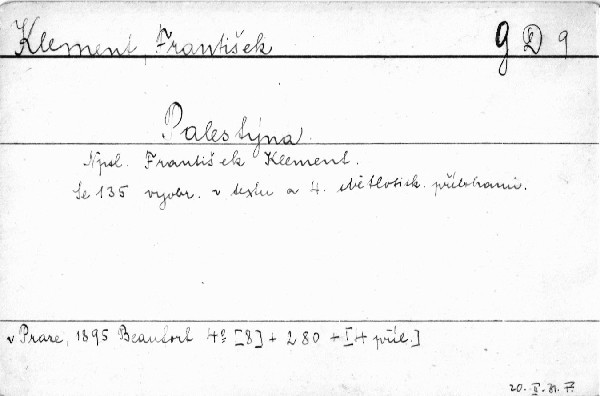 Klement, František g D 9
Palestýna.
Npsl. František Klement.
Se 135 vyobr. v textu a 4. světlotisk. přílohami.
v Praze, 1895 Beaufort 4° [8] + 280 + [4 příl.]
20. II. 31. F.